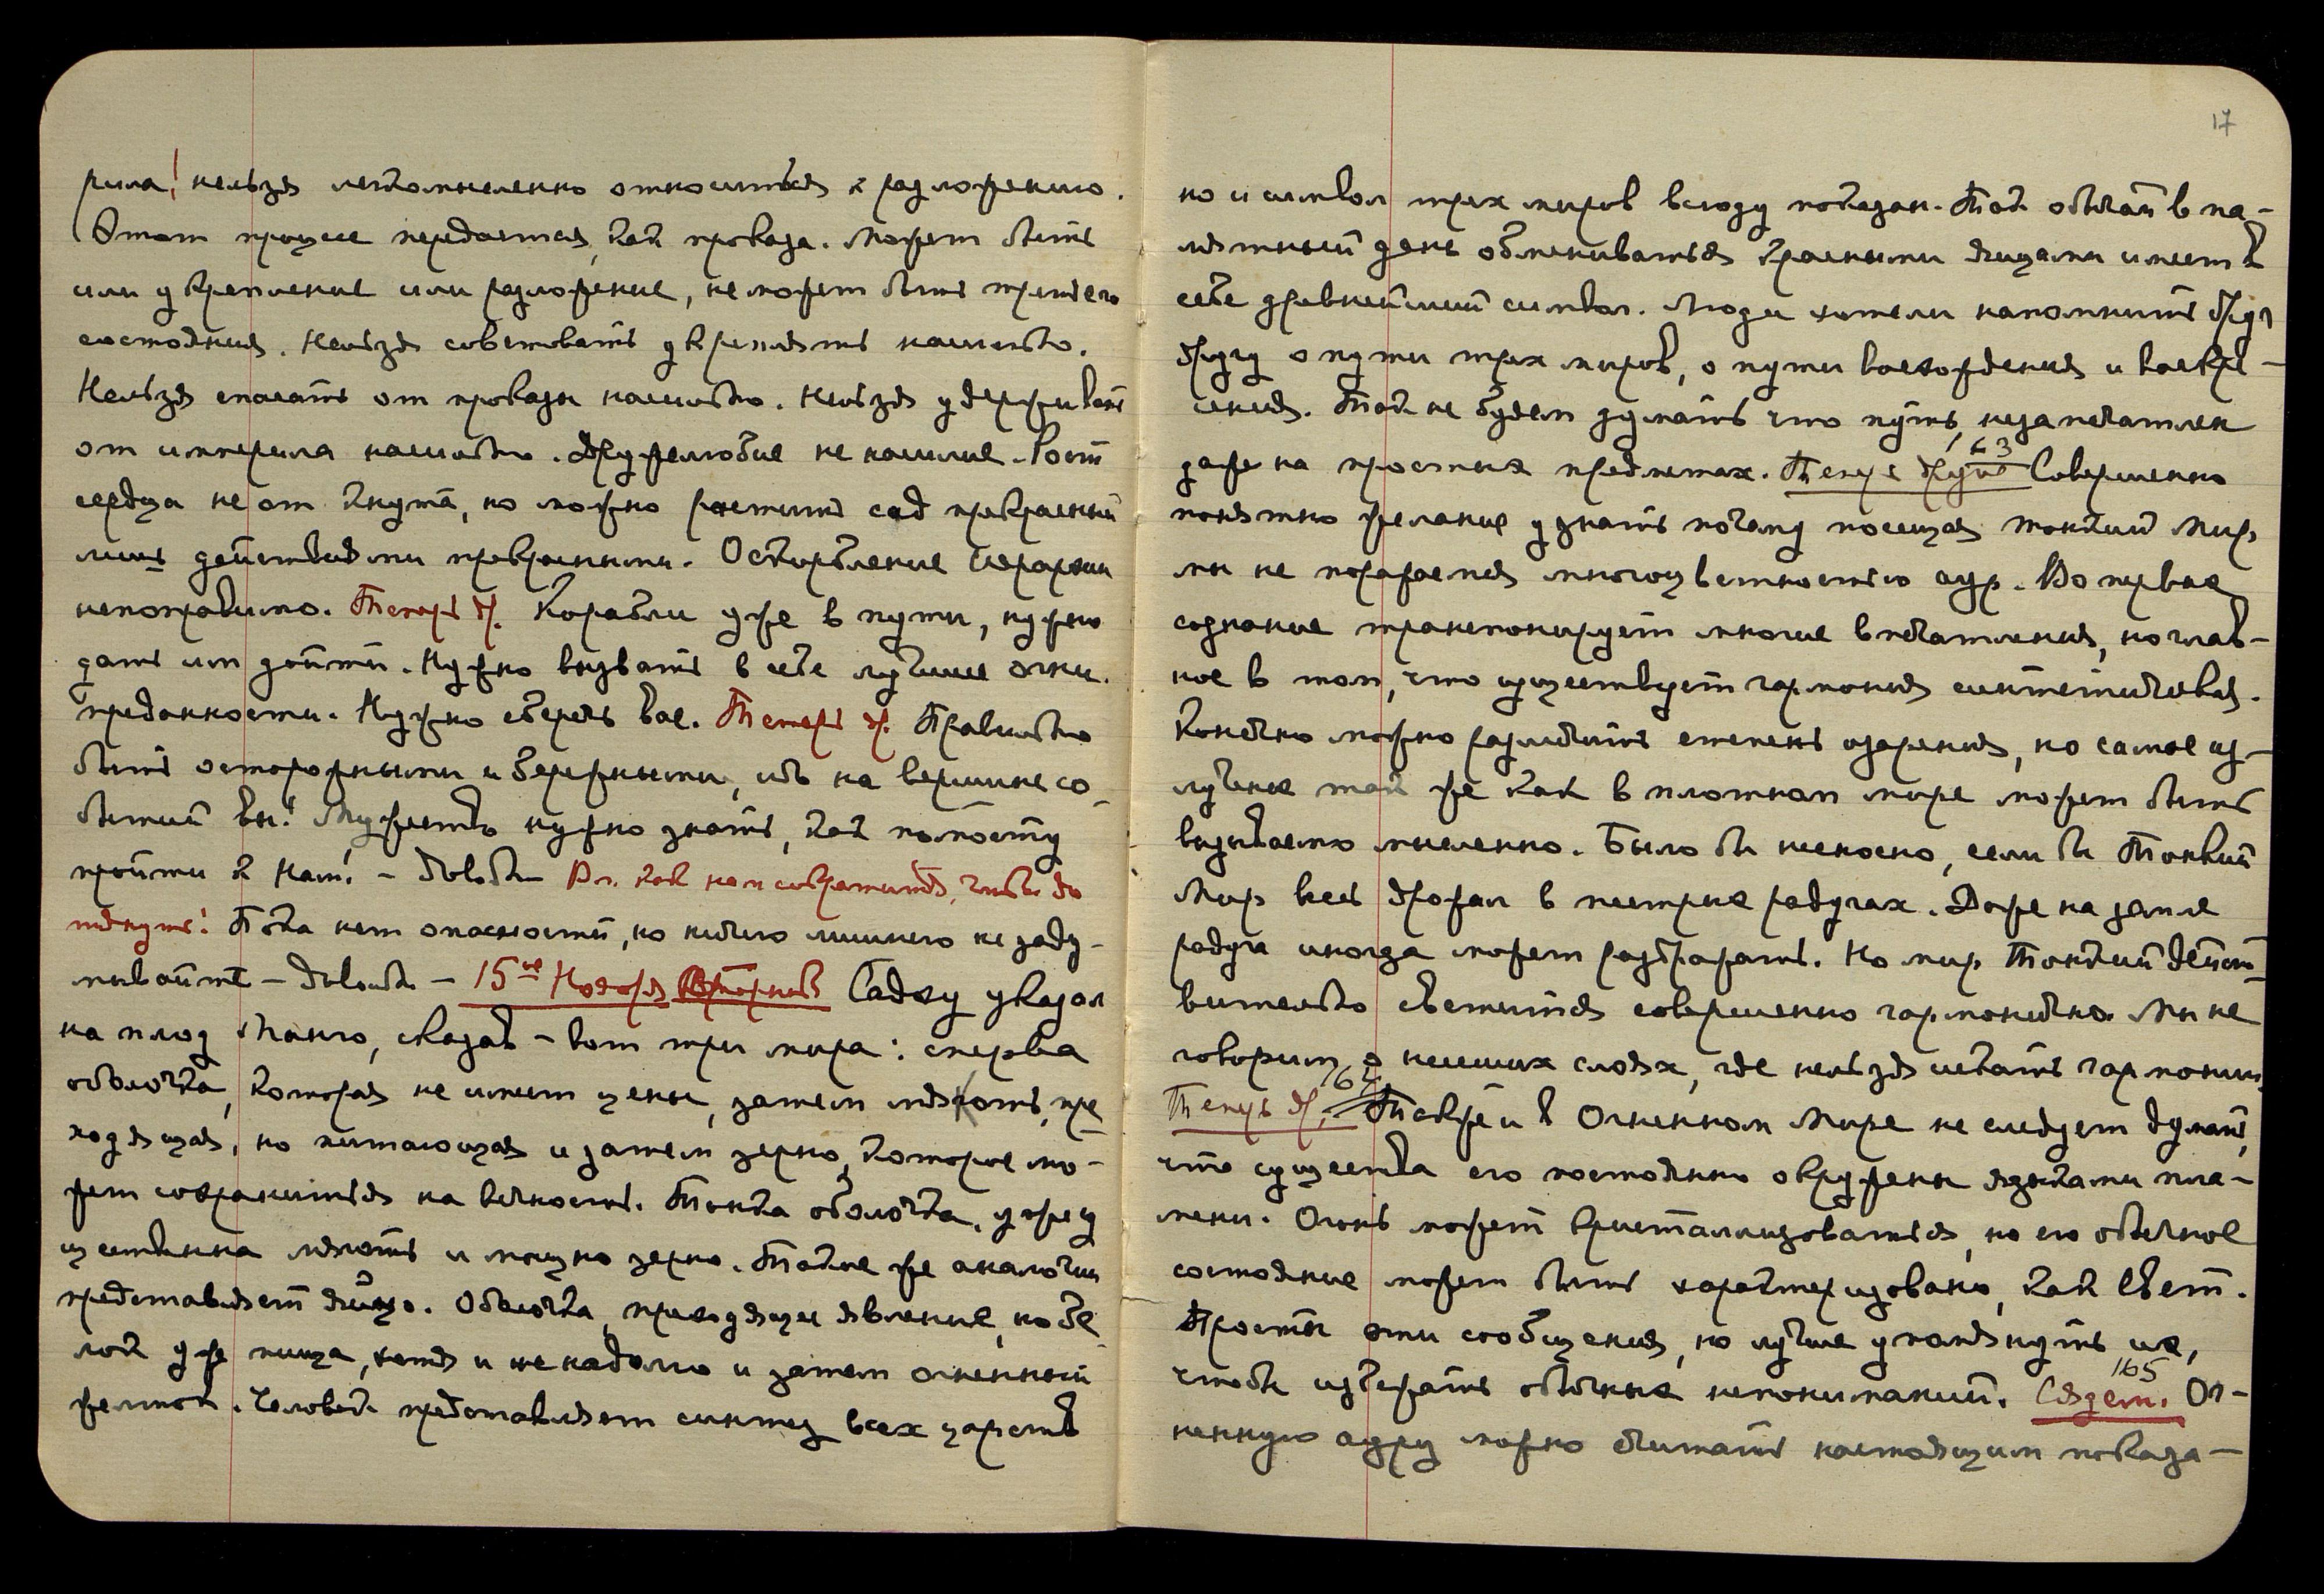 рила! нельзя легкомысленно относиться к разложению.
Этот процесс передается, как проказа. Может быть
или укрепление или разложение, не может быть третьего
состояния. Нельзя советовать укреплять насильно.
Нельзя спасать от проказы насильно. Нельзя удерживать
от империла насильно. Дружелюбие не насилие. Рост
сердца не от кнута, но можно растить сад прекрасный
лишь действиями прекрасными. Оскорбление Иерархии
непоправимо. Теперь др. Корабли уже в пути, нужно
дать им дойти. Нужно вызвать в себе лучшие огни.
преданности. Нужно сберечь все. Теперь др. Правильно
быть осторожными и бережными, ибо на вершине со-
бытий вы! Мужество нужно знать, как по мосту
пройти к Нам! – Довольно – Вл. как нам сократиться, чтобы до
тянуть! Пока нет опасности, но ничего лишнего не заду-
мывайте – Довольно – 15ое Ноября Вторник Садху указал
на плод Манго, сказав – вот три мира: сперва
оболочка, которая не имеет цены, затем мякоть, пре
ходящая, но питающая и затем зерно, которое мо-
жет сохраниться на вечность. Тонка оболочка, уже су
щественна мякоть и мощно зерно. Такие же аналогии
представляет яйцо. Оболочка, преходящее явление, но бе
лок уже пища, хотя и не надолго и затем огненный
желток. Человек представляет синтез всех царств
17
но и символ трех миров всюду показан. Так обычай в па-
мятный день обмениваться красными яйцами имеет в
себе древнейший символ. Люди хотели напомнить друг
другу о пути трех миров, о пути восхождения и воскре-
сения. Так не будем думать что путь, незапечатлен
даже на простых предметах. Теперь другое 163 Совершенно
понятно желание узнать почему посещая тонкий Мир
мы не поражаемся многоцветностью аур. Во первых
сознание транспонирует многие впечатления, но глав-
ное в том, что существует гармония синтетическая.
Конечно можно различить степень озарения, но самое из-
лучение так же как в плотном мире может быть
вызываемо мысленно. Было бы несносно, если бы Тонкий
Мир весь дрожал в пестрых радугах. Даже на земле
радуга иногда может раздражать. Но мир Тонкий действ
вительно светится совершенно гармонично. Мы не
говорим о низших слоях, где нельзя искать гармонии
Теперь др. 164 Также и в Огненном Мире не следует думать,
что существа его постоянно окружены языками пла-
мени. Огонь может кристаллизоваться, но его обычное
состояние может быть характеризовано, как Свет.
Просты эти сообщения, но лучше упомянуть их,
чтобы избежать обычных непониманий. Сядем. 165 Ог-
ненную ауру можно считать настоящим показа-